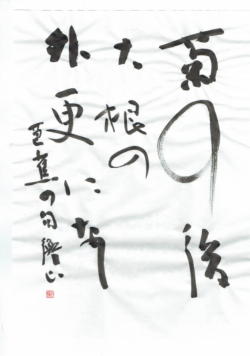 菊の後
大根の
外更になし
芭蕉の句